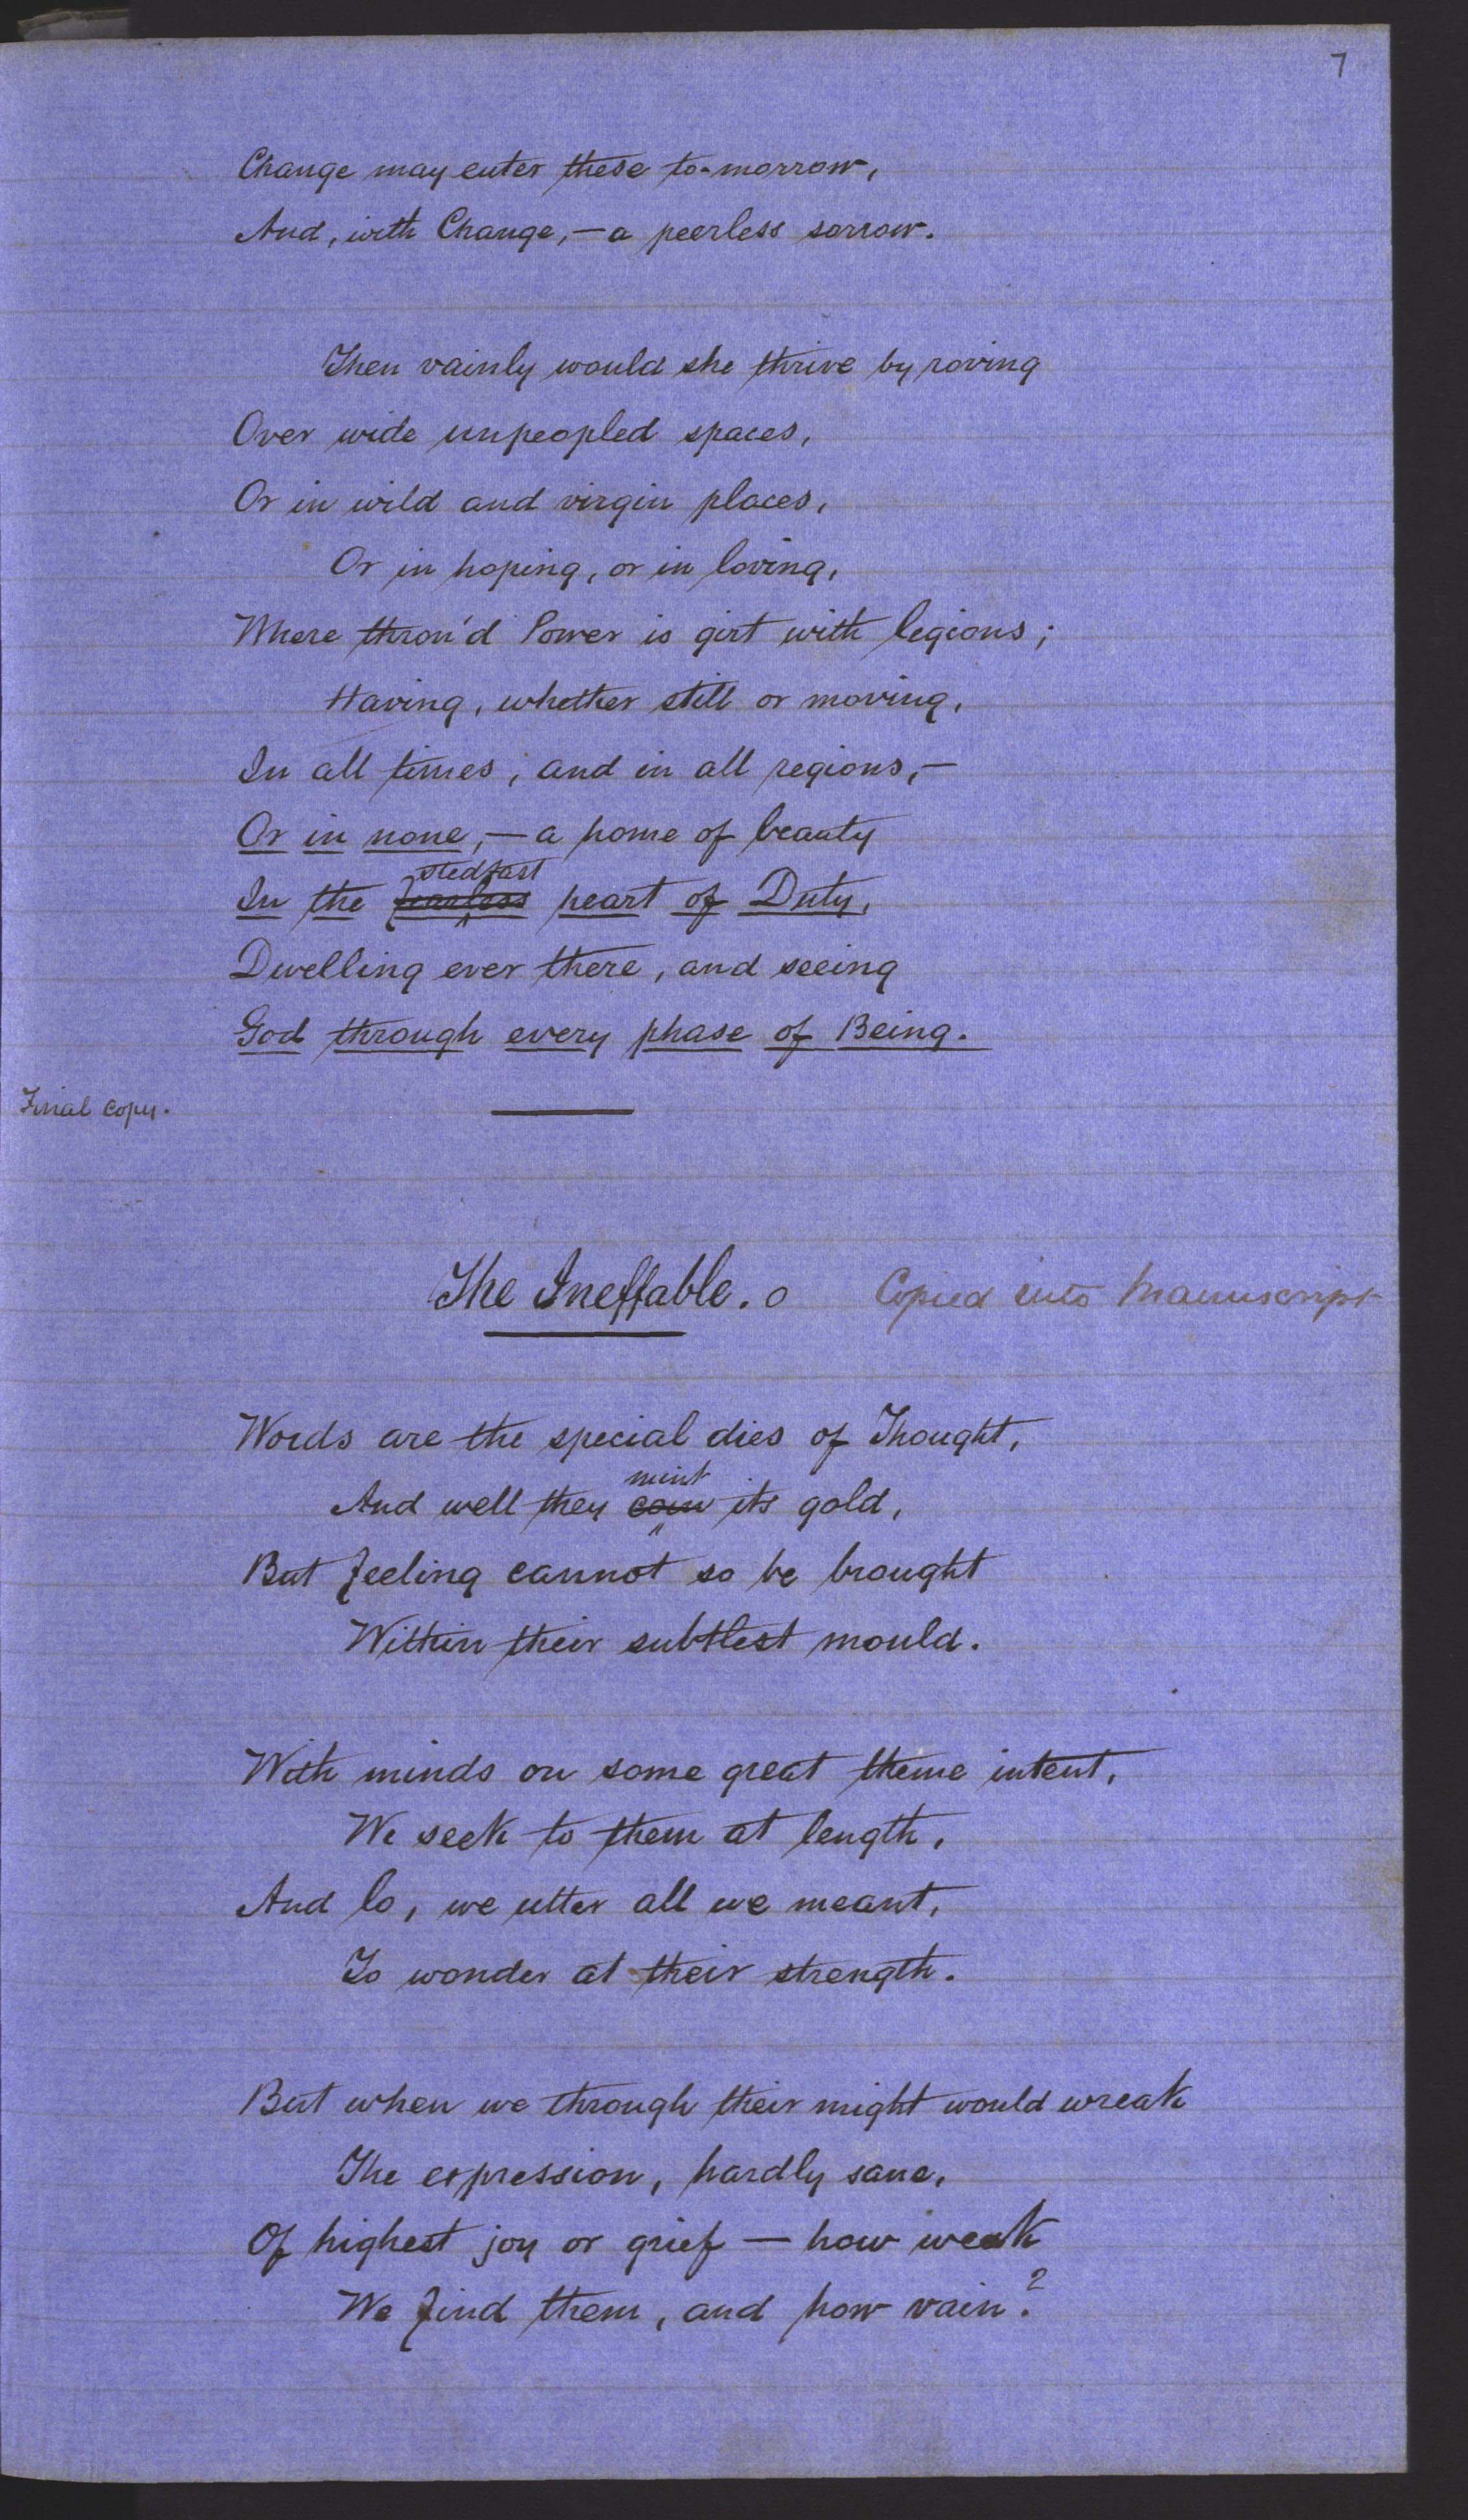 7
Change may enter these to-morrow,
And, with Change, — a peerless sorrow.
Then vainly would she thrive by roving
Over wide unpeopled spaces,
Or in wild and virgin places,
Or in hoping, or in loving,
Where thron'd Power is girt with legions;
Having, whether still or moving,
In all times, and in all regions, —
Or in none, — a home of beauty
stedfast
In the fearless heart of Duty,
Dwelling ever there, and seeing
God through every phase of Being.
Final copy.
The Ineffable. o Copied into Manuscript
Words are the special dies of Thought,
mint
And well they coin its gold,
But feeling cannot so be brought
Within their subtlest mould.
With minds on some great theme intent,
We seek to them at length,
And lo, we utter all we meant,
To wonder at their strength.
But when we through their might would wreak
The expression, hardly sane,
Of highest joy or grief — how weak
We find them, and how vain?